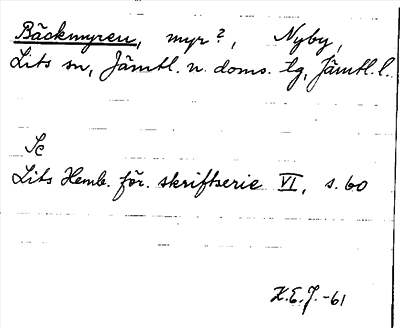 Bäckmyren, myr?, Nyby,
Lits sn, Jämtl. n. doms. lg, Jämtl. l.
Se
Lits Hemb. för. skriftserie VI, s. 60
K.E.J. -61